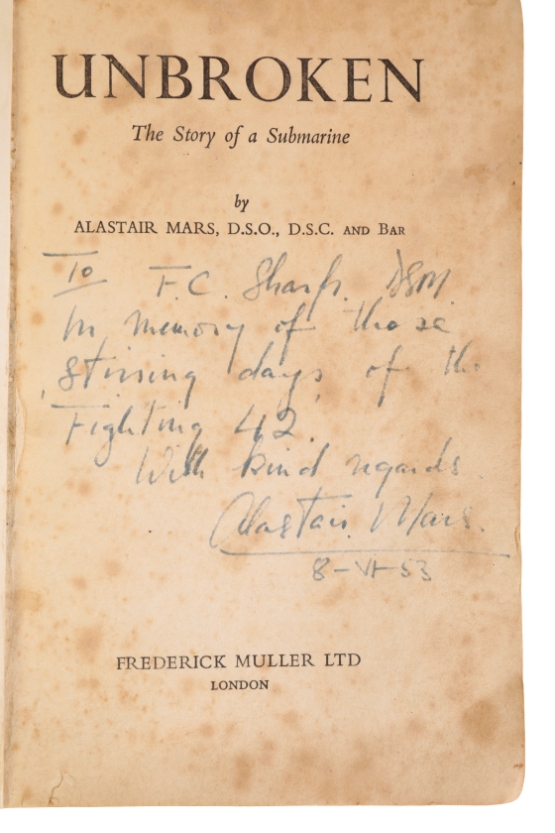 UNBROKEN
The Story of a Submarine
by
ALASTAIR MARS, D.S.O., D.S.C. AND BAR
To F.C. Sharp. DSM
In memory of those
stirring days of the
Fighting 42.
With kind regards.
Alastair Mars.
8-VI-53
FREDERICK MULLER LTD
LONDON